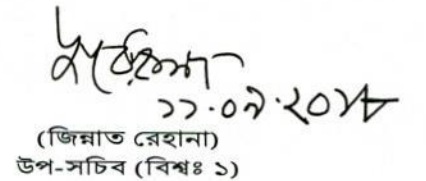 ১১.০৯.২০১৮
(জিন্নাত রেহানা)
উপ-সচিব (বিশ্বঃ ১)